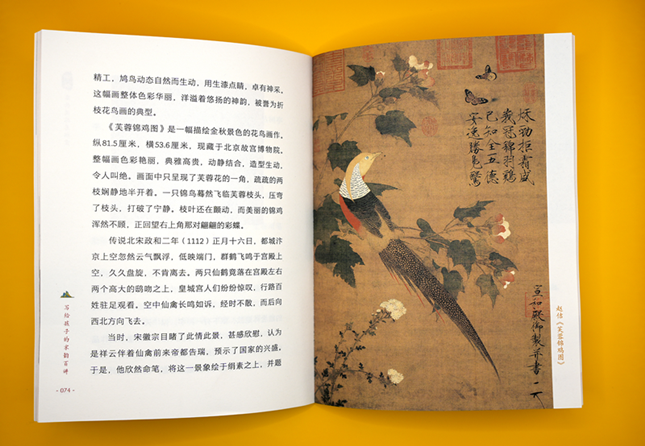 精工，鸠鸟动态自然而生动，用生漆点睛，卓有神采。
这幅画整体色彩华丽，洋溢着悠扬的神韵，被誉为折
枝花鸟画的典型。
《芙蓉锦鸡图》是一幅描绘金秋景色的花鸟画作，
纵81.5厘米，横53.6厘米，现藏于北京故宫博物院。
整幅画色彩艳丽，典雅高贵、动静结合，造型生动，
令人叫绝。画面中只呈现了芙蓉花的一角，疏疏的两
枝娴静地半开着。一只锦鸟蓦然飞临芙蓉枝头，压弯
了枝头，打破了宁静。枝叶还在颤动，而美丽的锦鸡
浑然不顾，正回望右上角那对翩翩的彩蝶。
传说北宋政和二年（1112）正月十六日，都城汴
京上空忽然云气飘浮，低映端门，群鹤飞鸣于宫殿上
空，久久盘旋，不肯离去。两只仙鹤竟落在宫殿左右
两个高大的鸱吻之上，皇城宫人们纷纷惊叹，行路百
姓驻足观看。空中仙禽长鸣如诉，经时不散，而后向
西北方向飞去。
当时，宋徽宗目睹了此情此景，甚感欣慰，认为
是祥云伴着仙禽前来帝都告瑞，预示了国家的兴盛。
于是，他欣然命笔，将这一景象绘于绢素之上，并题
写给孩子的书翻百讲
- 074 -
秋劲拒霜盛
峩冠锦羽鷄
已知全五德
安逸勝凫鷖
宣和殿御製并書
赵佶《芙蓉锦鸡图》